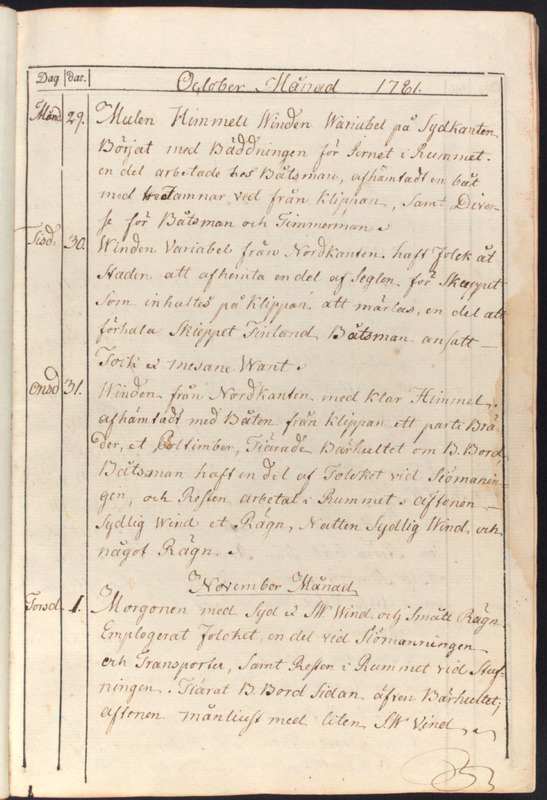 Dag dat. October Månad 1781.
Månd 29. Mulen Himmell Winden Wariabel på Sydkanten
Börjat med Bäddningen för Jernet i Rummet.
en del arbetade hos Båtsman, afhämtadt en båt
med famnar ved från Klippan, samt Diver-
se för Båtsman och Timmerman.
Tisd. 30. Winden Variabel från Nordkanten. haft Folck åt
Staden att afhemta en del af Seglen för Skeppet
som inhultes på Klippan att märlas, en del att
förhala Skieppet Finland Båtsman ansatt
Fock & mesane Want.
Onsd 31. Winden från Nordkanten med klar Himmel,
afhämtadt med Båten från Klippan ett parti Brä-
der, et timber, Tiärade Bärhultet om B. Bord,
Båtsman haft en del af Folcket vid Siömanin-
gen, och Resten arbetat i Rummet. Aftonen
Sydlig Wind et Rägn, Natten Sydlig Wind och
något Rägn.
November Månad
Torsd. 1. Morgonen med Syd & SW Wind och Smått Rägn
Emplogerat Folcket, en del vid Siömanningen
och Transporter, samt Resten i Rummet vid Stuf-
ningen. Tiärat B. Bord Sidan äfven Bärhultet;
aftonen med liten SW Vind